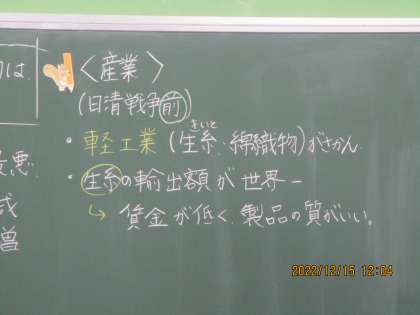 は
〈産業〉
(日清戦争前)
・軽工業(生糸、綿織物)がさかん
きいと
・生糸の輸出額が世界一
悪
↳ 賃金が低く、製品の質がいい。
式
増
2022/12/15 12:04